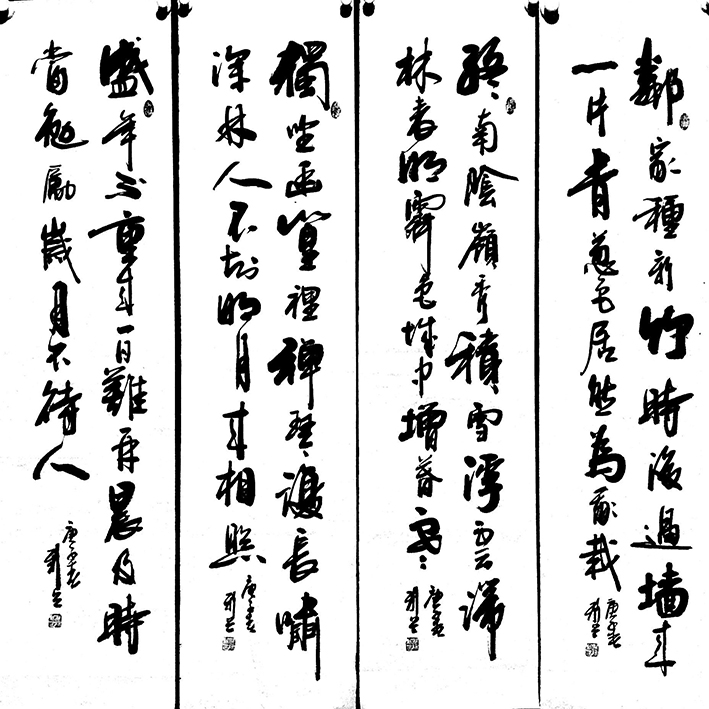 鄰家種新竹時復過墙来
一片青葱色居然為我栽
庚子春
終南陰嶺秀積雪浮雲端
林表明霽色城中增暮寒
庚子春
獨坐幽篁裡彈琴復長嘯
深林人不知明月来相照
庚子春
盛年不重来一日難再晨及時
當勉勵歲月不待人
庚子春